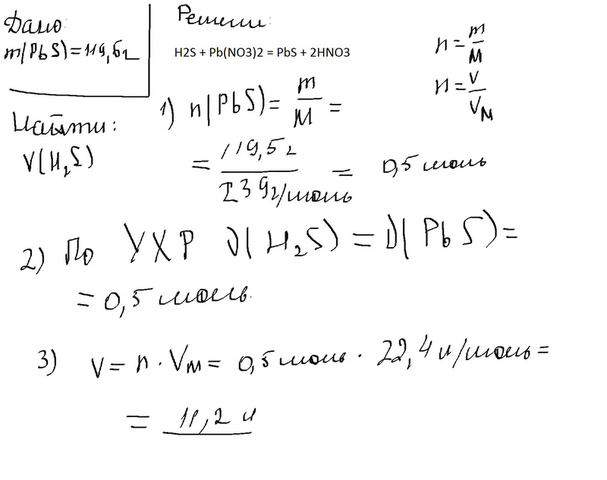 Дано:
m(PbS)=119,5г
Найти:
V(H2S)
Решени:
H2S + Pb(NO3)2 = PbS + 2HNO3
n = m/M
n = V/VM
1) n(PbS) = m/M =
= 119,5г/239г/моль = 0,5 моль
2) По УХР ν(H2S) = ν(PbS) =
= 0,5 моль.
3) V = n · VM = 0,5 моль · 22,4 л/моль =
= 11,2 л